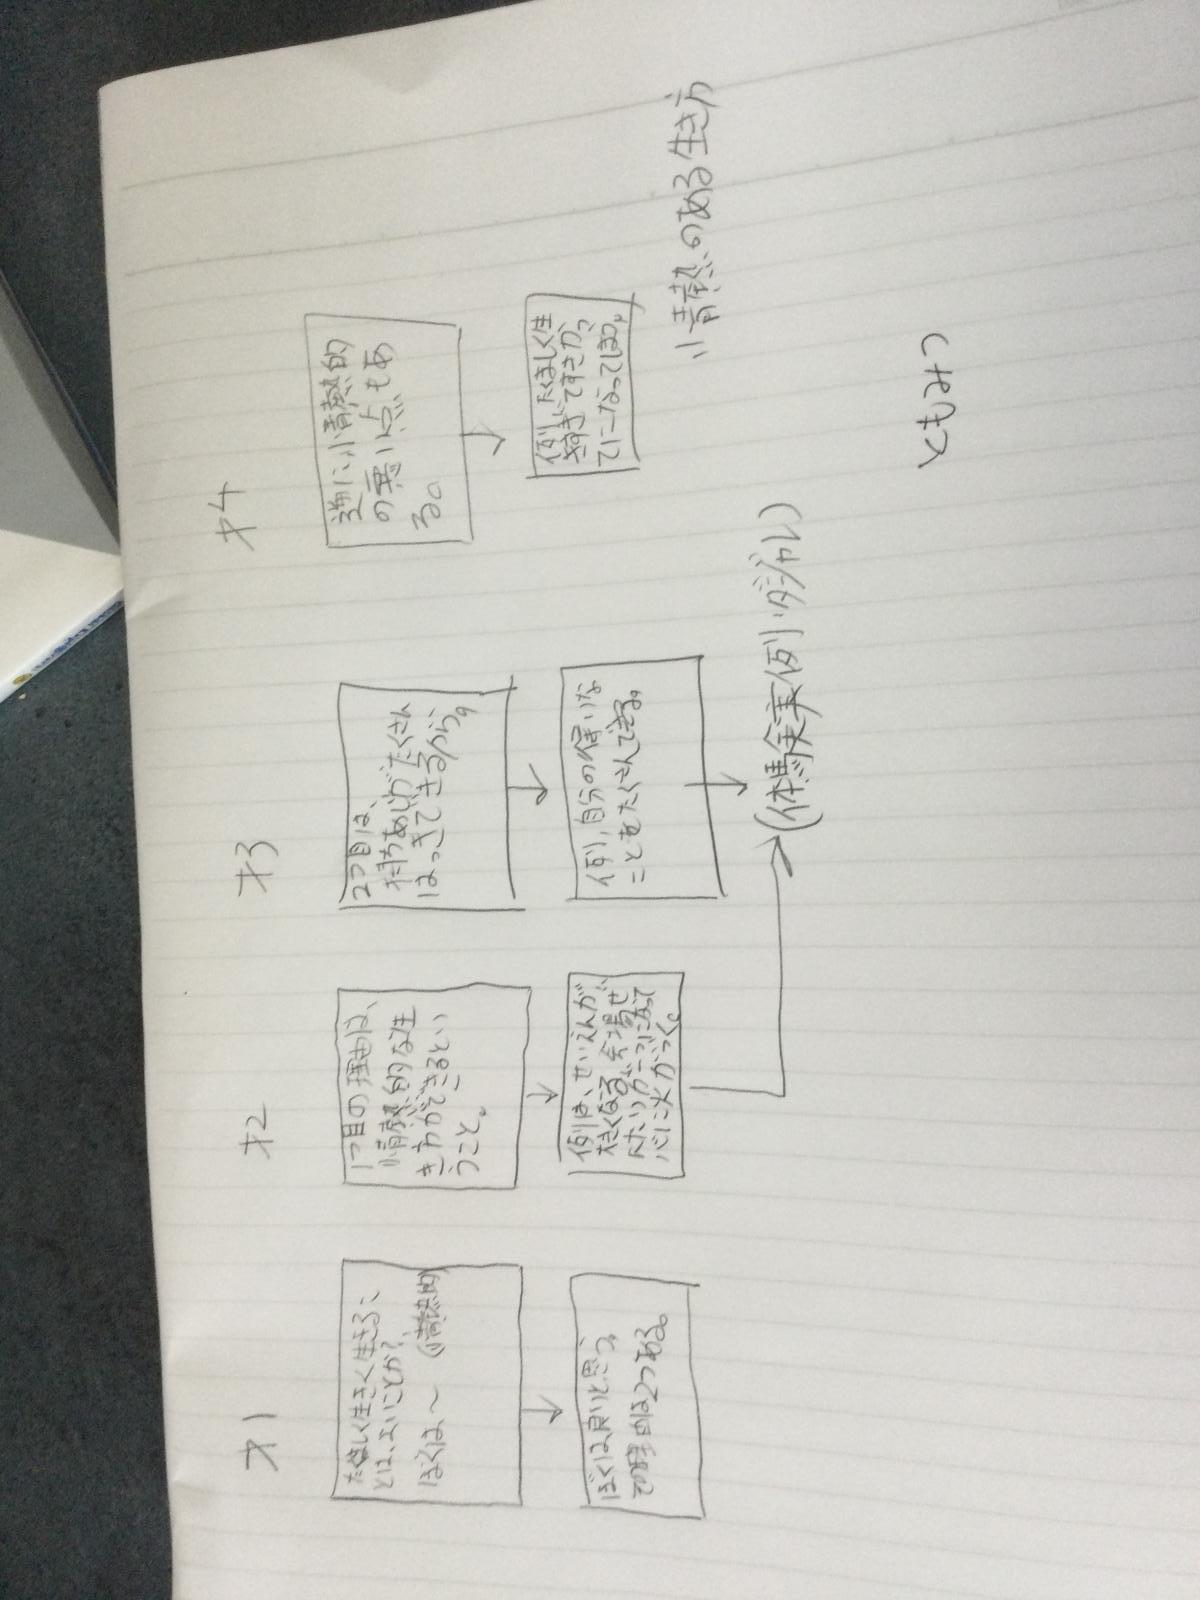 才1
楽しく生きく生きるこ
とは、よいことか?
ぼくは〜(情熱的
ぼくは良いと思う。
その理由は2つある。
才2
1つ目の理由は、
情熱的な生
き方ができるとい
うこと。
例は、せいえんが
大きくなる。会場ぜ
んたいが一つになって
心に火がつく。
才3
2つ目は、
持ちあじがたくさん
はっきできるから。
例,自分の得いな
ことをたくさんできる。
(体験実例・ダジャレ)
才4
逆に、情熱的
の悪い点もあ
る。
例,たくましく生
きすぎてすきかっ
てになってしまう。
情熱のある生き方
ともはく